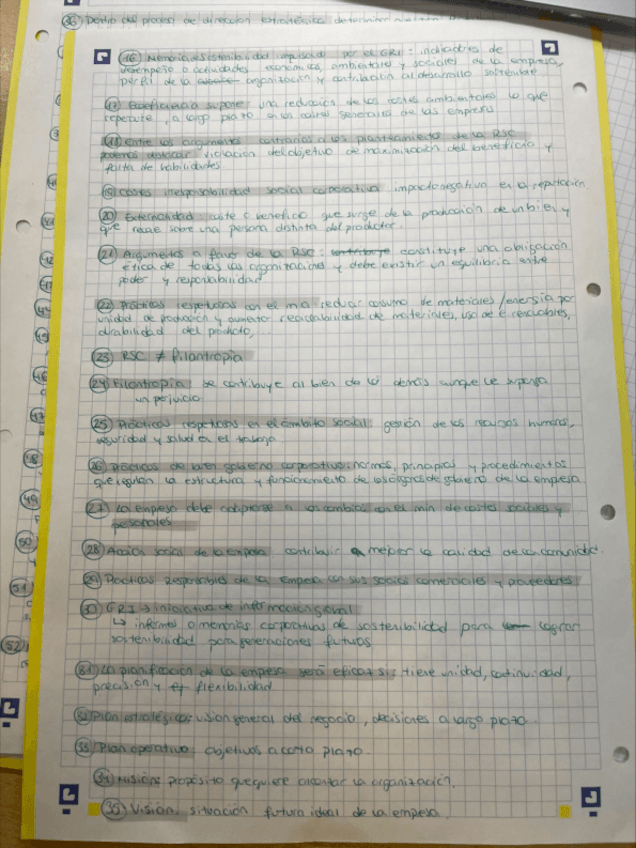 36 Dentro del proceso de dirección estratégica determinar
16 Memoria sostenibilidad impulsada por el GRI: indicadores de
desempeño o actividades económicas, ambientales y sociales de la empresa,
perfil de la organización y contribución al desarrollo sostenible
17 Ecoeficiencia supone una reducción de los costes ambientales lo que
repercute, a largo plazo en los costes generales de las empresas
18 Entre los argumentos contrarios a los planteamiento de la RSC
podemos destacar violación del objetivo de maximización del beneficio y
falta de habilidades
19 costes irresponsabilidad social corporativa impacto negativo en la reputación
20 Externalidad: coste o beneficio que surge de la producción de un bien y
que recae sobre una persona distinta del productor.
21 Argumentos a favor de la RSC: constituye una obligación
ética de todas las organizaciones y debe existir un equilibrio entre
poder y responsabilidad
22 Prácticas respetuosas con el m.a reducir consumo de materiales/energía por
unidad de producción y aumento reciclabilidad de materiales, uso de e. renovables,
durabilidad del producto,...
23 RSC ≠ filantropía
24 Filantropía se contribuye al bien de lo demás aunque le suponga
un perjuicio
25 Prácticas respetuosas en el ámbito social: gestión de los recursos humanos,
seguridad y salud en el trabajo
26 Prácticas de buen gobierno corporativo: normas, principios y procedimientos
que regulan la estructura y funcionamiento de los órganos de gobierno de la empresa
27 La empresa debe adaptarse a los cambios con el min de costes sociales y
personales
28 Acción social de la empresa contribuir a mejorar la calidad de la comunidad.
29 Practicas responsables de la empresa con sus socios comerciales y proveedores
30 GRI → iniciativa de información global
↳ informes o memorias corporativas de sostenibilidad para lograr
sostenibilidad para generaciones futuras
31 La planificación de la empresa será eficaz si: tiene unidad, continuidad,
precisión y flexibilidad
32 Plan estratégico: visión general del negocio, decisiones a largo plazo.
33 Plan operativo: objetivos a corto plazo.
34 Misión: propósito que quiere alcanzar la organización.
35 Visión: situación futura ideal de la empresa.
48
49
50
51
52